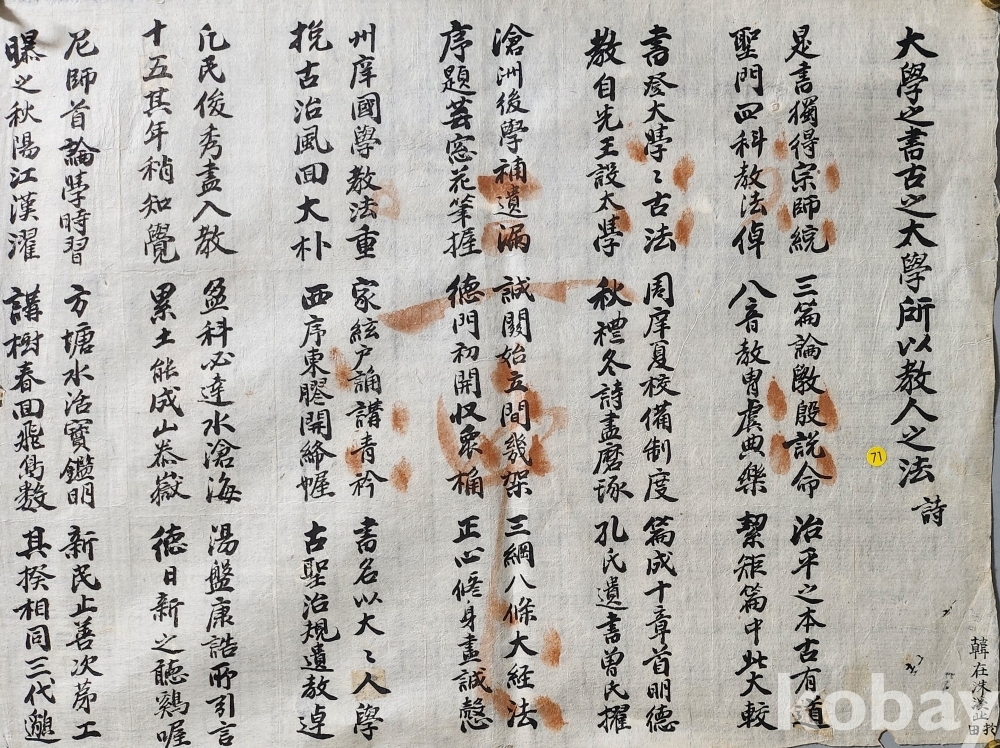 大學之書古之太學所以教人之法 詩
是書獨得宗師統 三篇論斅殷說命 治平之本古有道
聖門四科教法倬 八音教冑虞典樂 絜矩篇中此大較
書登大學〻古法 周庠夏校備制度 篇成十章首明德
教自先王設太學 秋禮冬詩盡磨琢 孔氏遺書曾氏擢
滄洲後學補遺漏 誠關始立間幾架 三綱八條大経法
序題芸窓花筆握 德門初開収衆桷 正心修身盡誠慤
州庠國學教法重 家絃戶誦講青衿 書名以大〻人學
挽古治風回大朴 西序東膠開絳幄 古聖治規遺教逴
凡民俊秀盡入教 盈科必達水滄海 湯盤康誥所引言
十五其年稍知覺 累土能成山泰嶽 德日新之聽鷄喔
尼師首論學時習 方塘水活寶鑑明 新民止善次第工
曝之秋陽江漢濯 講樹春回飛鳥數 其揆相同三代邈
71
韓在洙
kobay